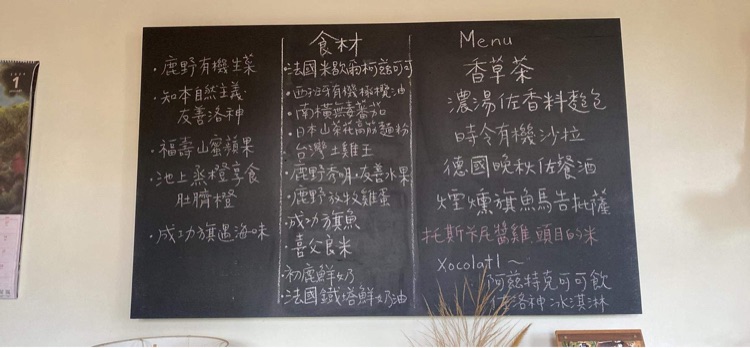 1
・鹿野有機生菜
・知本自然主義
友善洛神
・福壽山蜜蘋果
・池上蒸橙享食
肚臍橙
・成功旗遇海味
食材
・法國米歇爾柯茲可可
・西班牙有機橄欖油
・南橫無毒番茄
・日本山茶花高筋麵粉
・台灣土雞王
・鹿野秀明友善水果
・鹿野放牧雞蛋
・成功旗魚
・喜父良米
・初鹿鮮奶
・法國鐵塔鮮奶油
Menu
香草茶
濃湯佐香料麵包
時令有機沙拉
德國晚秋佐餐酒
煙燻旗魚馬告披薩
托斯卡尼醬雞,頭目的米
Xocolatl～
阿茲特克可可飲
佐洛神冰淇淋